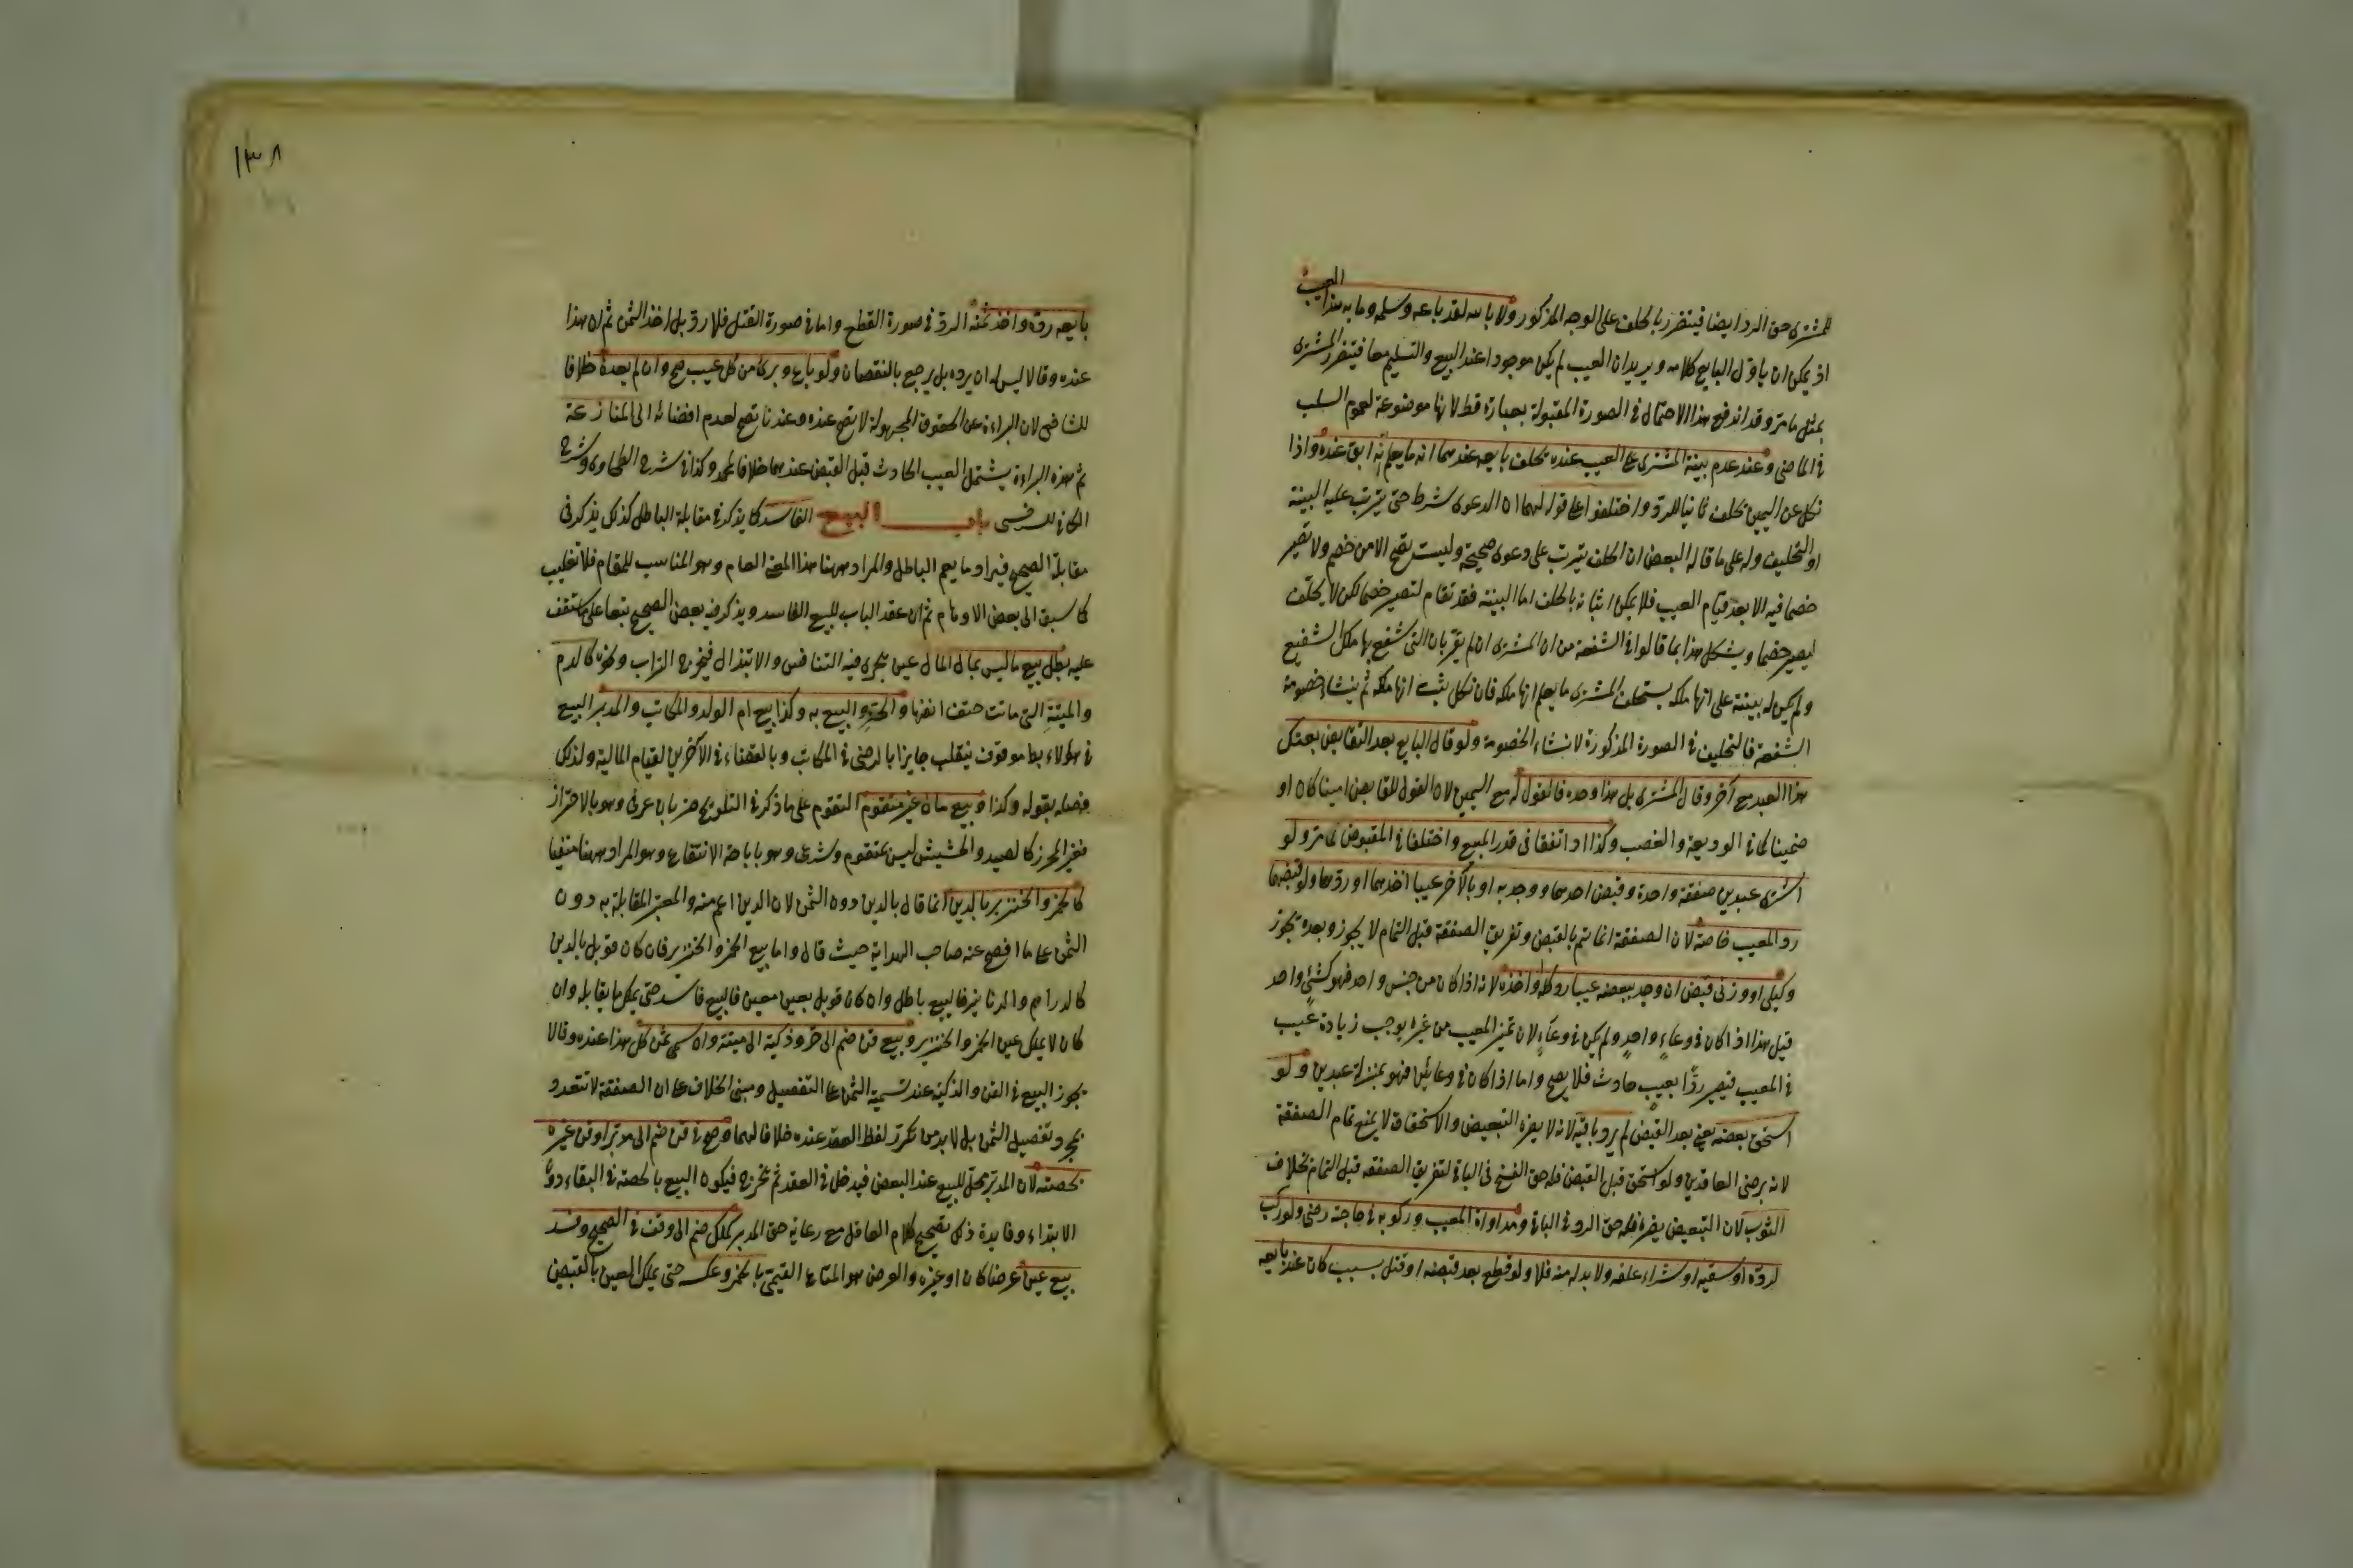 العيب
للمشتري حق الرد ايضا فيتضرر بالحلف على الوجه المذكور ولا بالله لقد باعه وسلمه وما به هذا
اذ يمكن ان ياول البايع كلامه ويريد ان العيب لم يكن موجودا عند البيع والتسليم معا فيتضرر المشتري
بمثل ما مر وقد اندفع هذا الاحتمال في الصورة المقبولة بعبارة قط لانها موضوعة لعموم السلب
في الماضي وعند عدم بينة المشتري على العيب عنده يحلف بايعه عندهما انه ما يعلم انه ابق عنده واذا
نكل عن اليمين يحلف ثانيا للرد واختلفوا على قوله لهما ان الدعوى شرط حتى يترتب عليه البينة
او التحليف وله على ما قاله البعض ان الحلف يترتب على دعوى صحيحة وليست تصح الا من خصم ولا تصير
خصما فيه الا بعد قيام العيب فلا يمكن اثباته بالحلف اما البينة فقد تقام لتصير خصما لكن لا يحلف
ليصير خصما ويشكل هذا بما قالوا في الشفعة من ان المشتري ان لم يقر بان التي شفع بها ملك الشفيع
ولم يكن له بينة على انها ملكه يستحلف المشتري ما يعلم انها ملكه فان نكل يثبت انها ملكه ثم ينشاء خصومة
الشفعة فالتحليف في الصورة المذكورة لانشاء الخصومة ولو قال البايع بعد التقابض بعتك
هذا العبد مع آخر وقال المشتري بل هذا وحده فالقول له مع اليمين لان القول للقابض امينا كان او
ضمينا كما في الوديعة والغصب وكذا اذا اتفقا في قدر المبيع واختلفا في المقبوض لما مر ولو
اشترى عبدين صفقة واحدة وقبض احدهما ووجد به او بالآخر عيبا اخذهما او ردهما ولو قبضهما
رد المعيب خاصة لان الصفقة انما يتم بالقبض وتفريق الصفقة قبل التمام لا يجوز وبعده يجوز
وكيلي او وزني قبض ان وجد ببعضه عيبا رد كله او اخذه لانه اذا كان من جنس واحد فهو كشئ واحد
قيل هذا اذا كان في وعاء واحد ولم يكن في وعاء لان تميز المعيب من غيره يوجب زيادة عيب
في المعيب فيصير ردا بعيب حادث فلا يصح واما اذا كان في وعائين فهو بمنزلة عبدين ولو
استحق بعضه يعني بعد القبض لم يرد باقيه لانه لا يضره التبعيض والاستحقاق لا يمنع تمام الصفقة
لانه برضى العاقدين ولو استحق قبل القبض فله حق الفسخ في الباقي لتفريق الصفقة قبل التمام بخلاف
الثوب لان التبعيض يضره فله حق الرد في الباقي ومداواة المعيب وركوبه في حاجته رضى ولو ركب
لرده او سقيه او شراء علفه ولا بد له منه فلا ولو قطع بعد قبضه او قتل بسبب كان عند بايعه
١٣٨
بايعه رده واخذ ثمنه الرد في صورة القطع واما في صورة القتل فلا رد بل اخذ الثمن ثم ان هذا
عنده وقالا ليس له ان يرده بل يرجع بالنقصان ولو باع وبرئ من كل عيب صح وان لم يعده خلافا
للشافعي لان البراءة عن الحقوق المجهولة لا يصح عنده وعندنا تصح لعدم افضائه الى المنازعة
ثم هذه البراءة يشتمل العيب الحادث قبل القبض عندهما خلافا لمحمد وكذا في شرح الطحاوي وشرح
الكافي للسرخسي باب البيع الفاسد كما يذكر في مقابلة الباطل كذلك يذكر في
مقابلة الصحيح فيراد ما يعم الباطل والمراد ههنا هذا المعنى العام وهو المناسب للمقام فلا تغليب
كما سبق الى بعض الاوهام ثم ان عقد الباب للبيع الفاسد ويذكر فيه بعض الصحيح تبعا على ما ستقف
عليه بطل بيع ما ليس بمال المال عين يجري فيه التنافس والابتذال فيخرج التراب ونحوه كالدم
والميتة التي ماتت حتف انفها والحر والبيع به وكذا بيع ام الولد والمكاتب والمدبر البيع
في هؤلاء بط موقوف ينقلب جايزا بالرضى في المكاتب وبالقضاء في الآخرين لقيام المالية ولذلك
فصله بقوله وكذا وبيع مال غير متقوم التقوم على ما ذكر في التلويح ضربان عرفي وهو بالاحراز
فغير المحرز كالصيد والحشيش ليس بمتقوم وشرعي وهو باباحة الانتفاع وهو المراد ههنا منفيا
كالخمر والخنزير بالدين انما قال بالدين دون الثمن لان الدين اعم منه والمعتبر المقابلة به دون
الثمن على ما افصح عنه صاحب الهداية حيث قال واما بيع الخمر والخنزير فان كان قوبل بالدين
كالدراهم والدنانير فالبيع باطل وان كان قوبل بعين معين فالبيع فاسد حتى يملك ما يقابله وان
كان لا يملك عين الخمر والخنزير وبيع قن ضم الى حر وذكية الى ميتة وان سمى ثمن كل هذا عنده وقالا
يجوز البيع في القن والذكية عند تسمية الثمن على التفصيل ومبنى الخلاف على ان الصفقة لا تتعدد
بمجرد تفصيل الثمن بل لا بد من تكرر لفظ العقد عنده خلافا لهما وصح في قن ضم الى مدبر او قن غيره
بحصته لان المدبر محل للبيع عند البعض فيدخل في العقد ثم يخرج فيكون البيع بالحصة في البقاء دون
الابتداء وفايدة ذلك تصحيح كلام العاقل مع رعاية حق المدبر كملك ضم الى وقف في الصحيح وفسد
بيع عين عرضا كان او غيره والعرض هو المتاع القيمي بالخمر وعكسه حتى يملك العين بالقبض